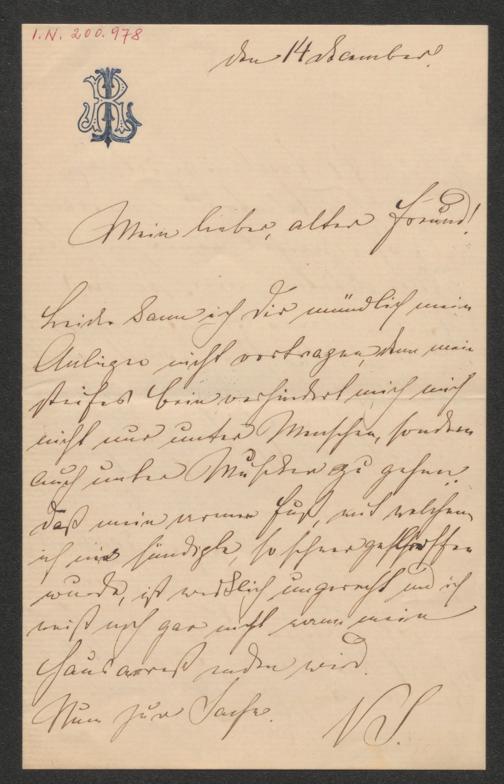 I.N. 200.978
den 14 Dezember.
Mein lieber, alter Freund!
Leider kann ich Dir mündlich mein
Anliegen nicht vortragen, denn mein
steifes Bein verhindert mich mich
nicht nur unter Menschen, sondern
auch unter Musiker zu gehen.
Daß mein armer Fuß, mit welchem
ich nie sündigte, so schwer getroffen
wurde, ist wirklich ungerecht und ich
weiß noch gar nicht wann mein
Hausarrest enden wird.
Nun zur Sache.